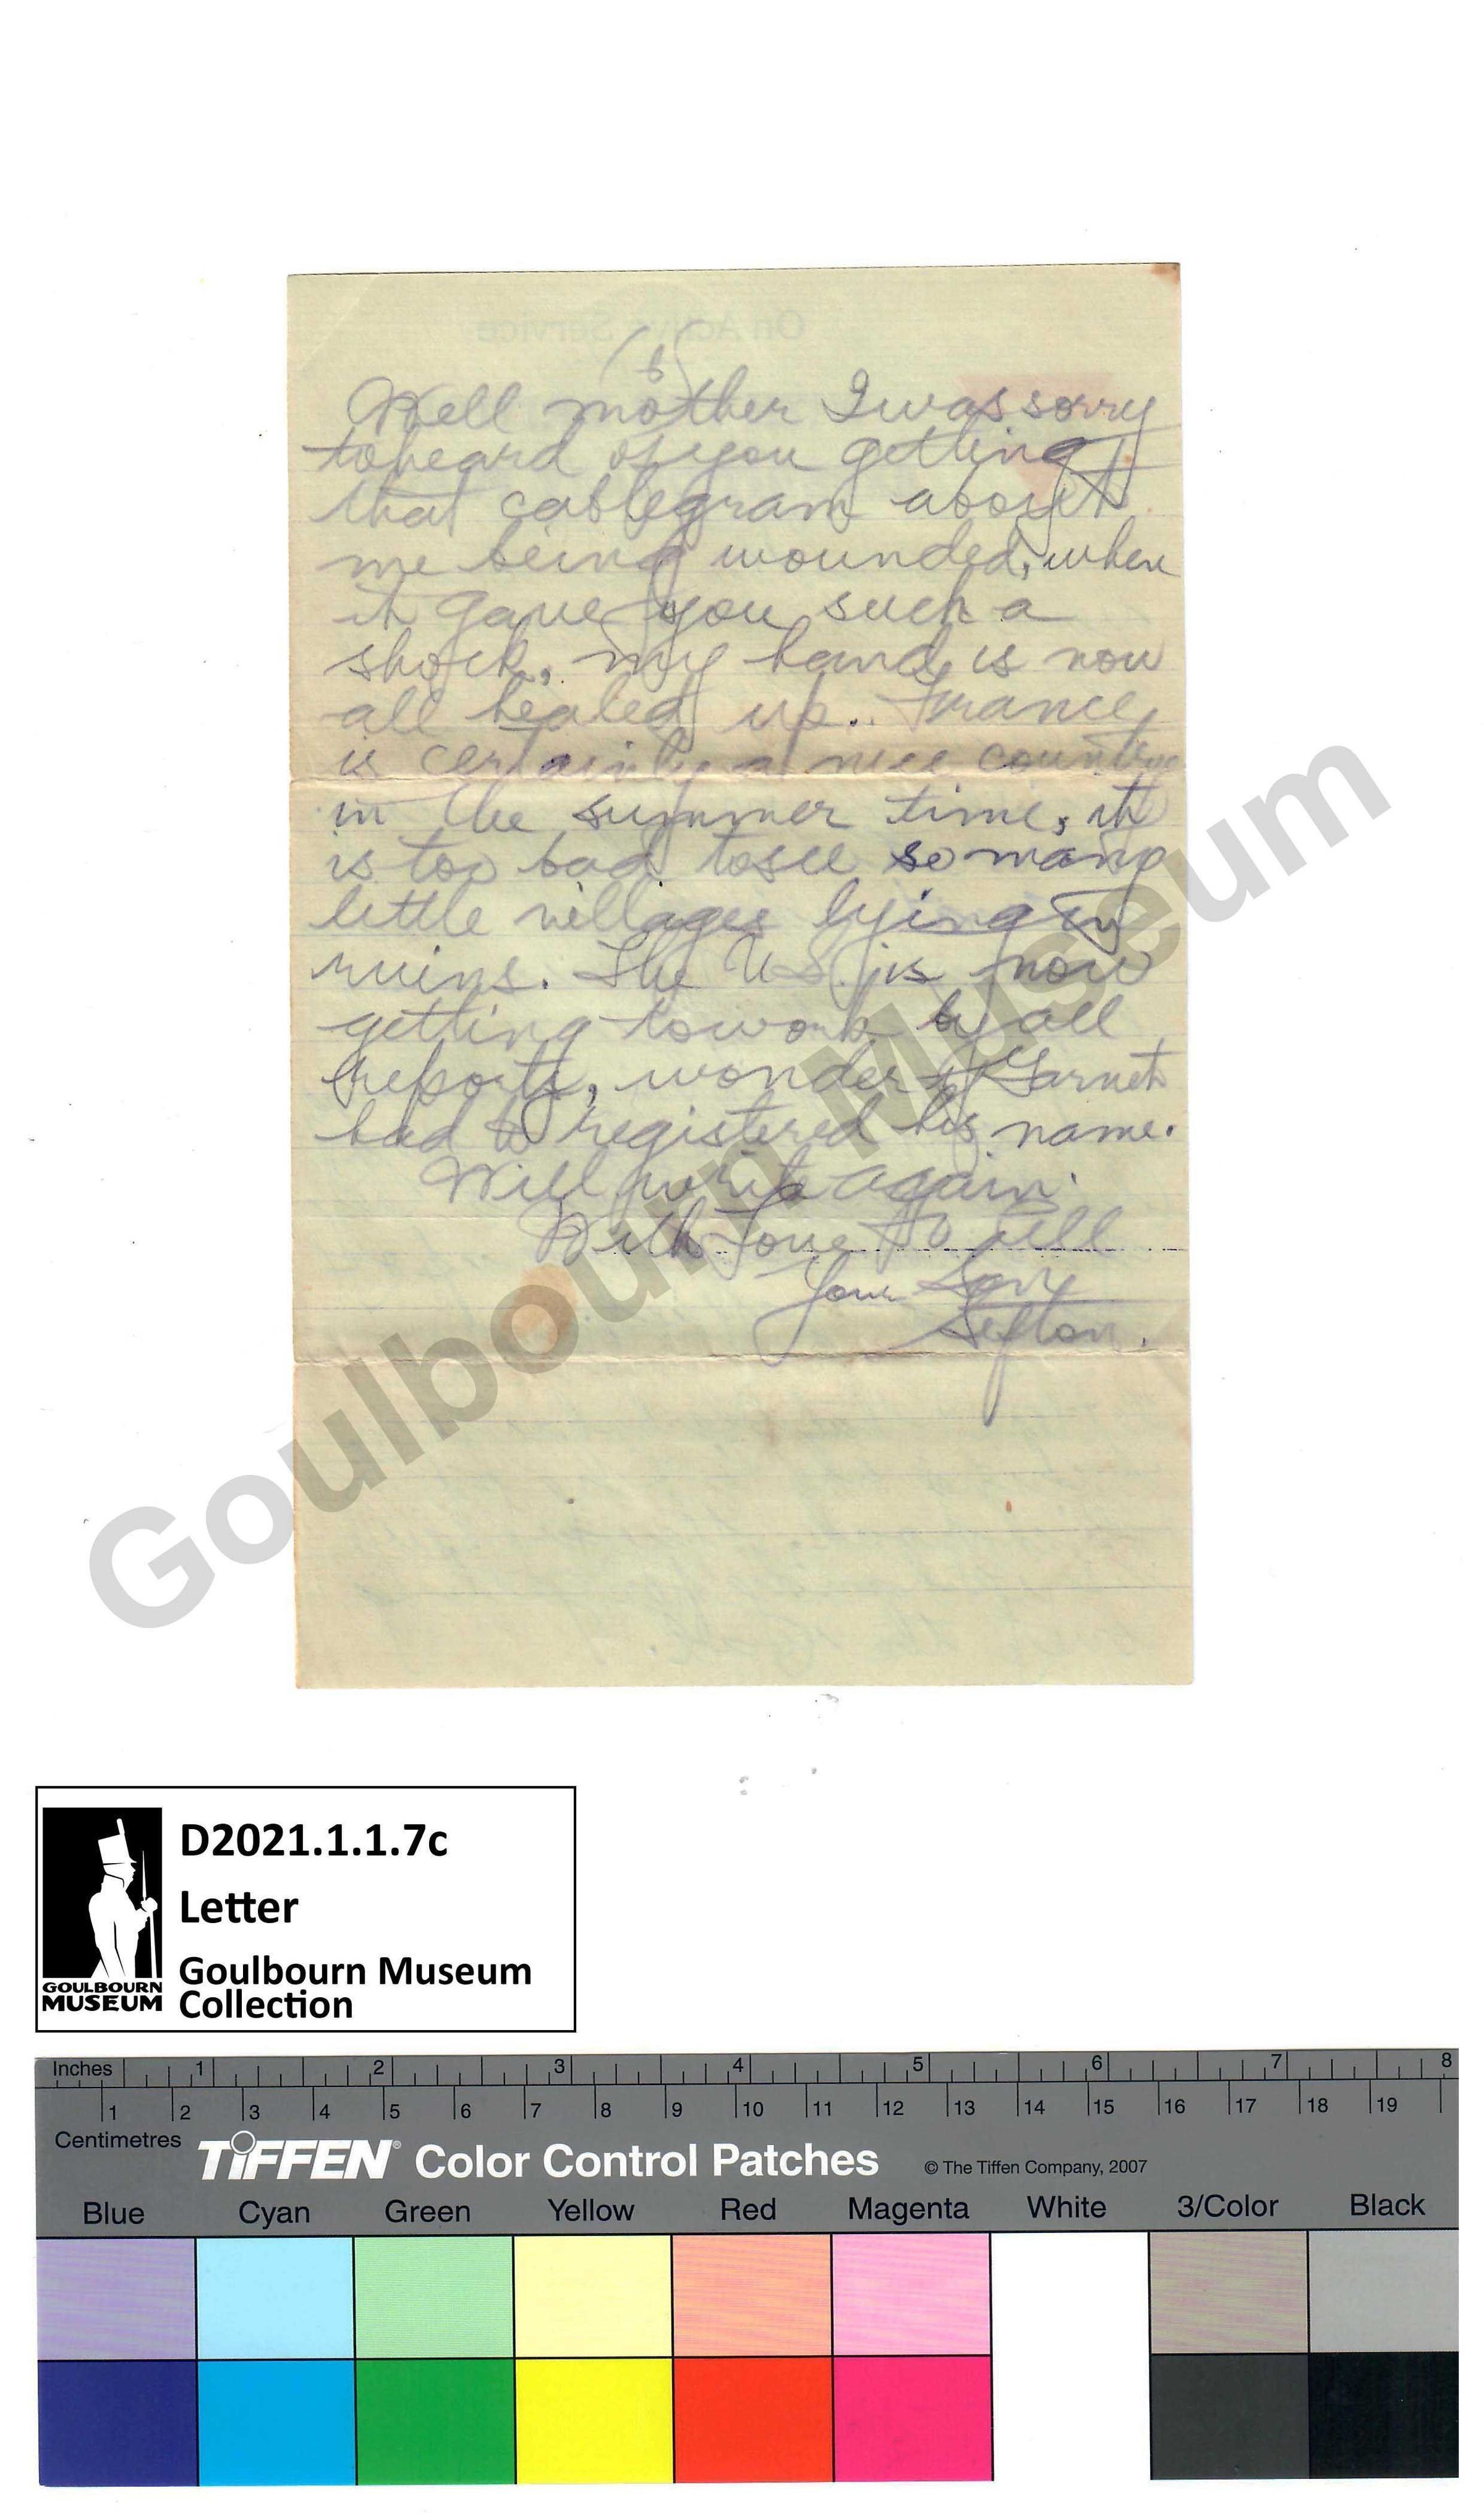 (6)
Well mother I was sorry
to heard of you getting
that cablegram about
me being wounded, when
it gave you such a
shock, my hand is now
all healed up. France
is certainly a nice country
in the summer time, it
is too bad to see so many
little villages lying in
ruins. The U.S. is now
getting to work by all
reports, wonder if Garnet
had to registered his name.
Will write again.
With Love to all
Your Son
Sefton.
Goulbourn Museum
D2021.1.1.7c
Letter
Goulbourn Museum
Collection
GOULBOURN
MUSEUM
Inches 1 2 3 4 5 6 7 8
1 2 3 4 5 6 7 8 9 10 11 12 13 14 15 16 17 18 19
Centimetres
TIFFEN® Color Control Patches © The Tiffen Company, 2007
Blue Cyan Green Yellow Red Magenta White 3/Color Black